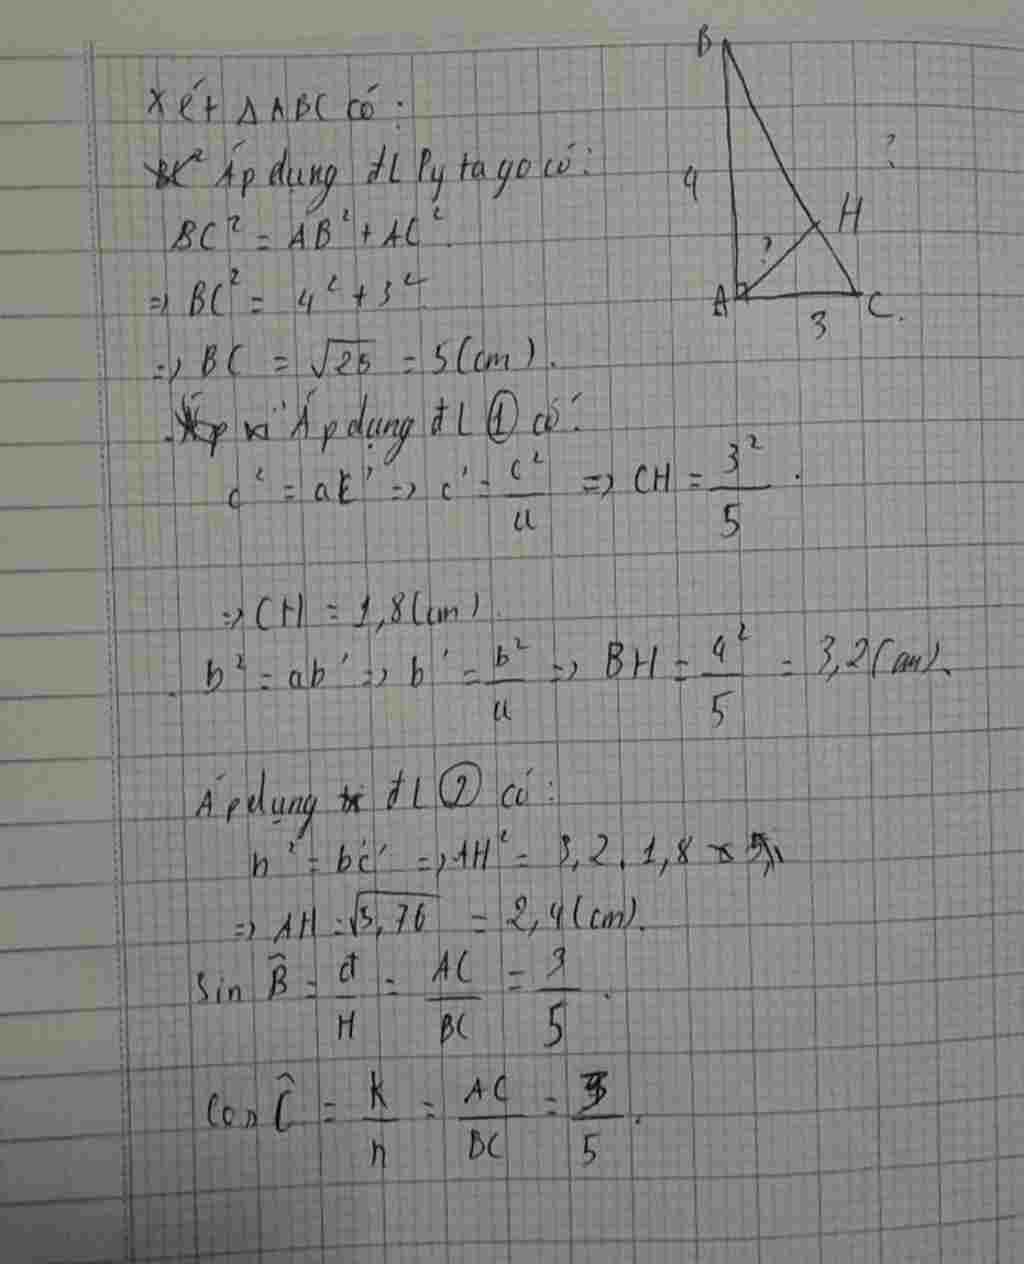 B
Xét Δ ABC có:
Áp dụng đL Pytago có:
?
4
BC² = AB² + AC².
H
?
⇒ BC² = 4² + 3²
A
C.
3
⇒ BC = √25 = 5(cm).
Áp dụng đL ① có:
c² = ac' ⇒ c' = c²/a ⇒ CH = 3²/5.
⇒ CH = 1,8(cm).
b² = ab' ⇒ b' = b²/a ⇒ BH = 4²/5 = 3,2(cm).
Áp dụng đL ② có:
h² = b'c' ⇒ AH² = 3,2.1,8
⇒ AH = √5,76 = 2,4(cm).
Sin B̂ = đ/H = AC/BC = 3/5.
Cos Ĉ = k/h = AC/BC = 3/5.